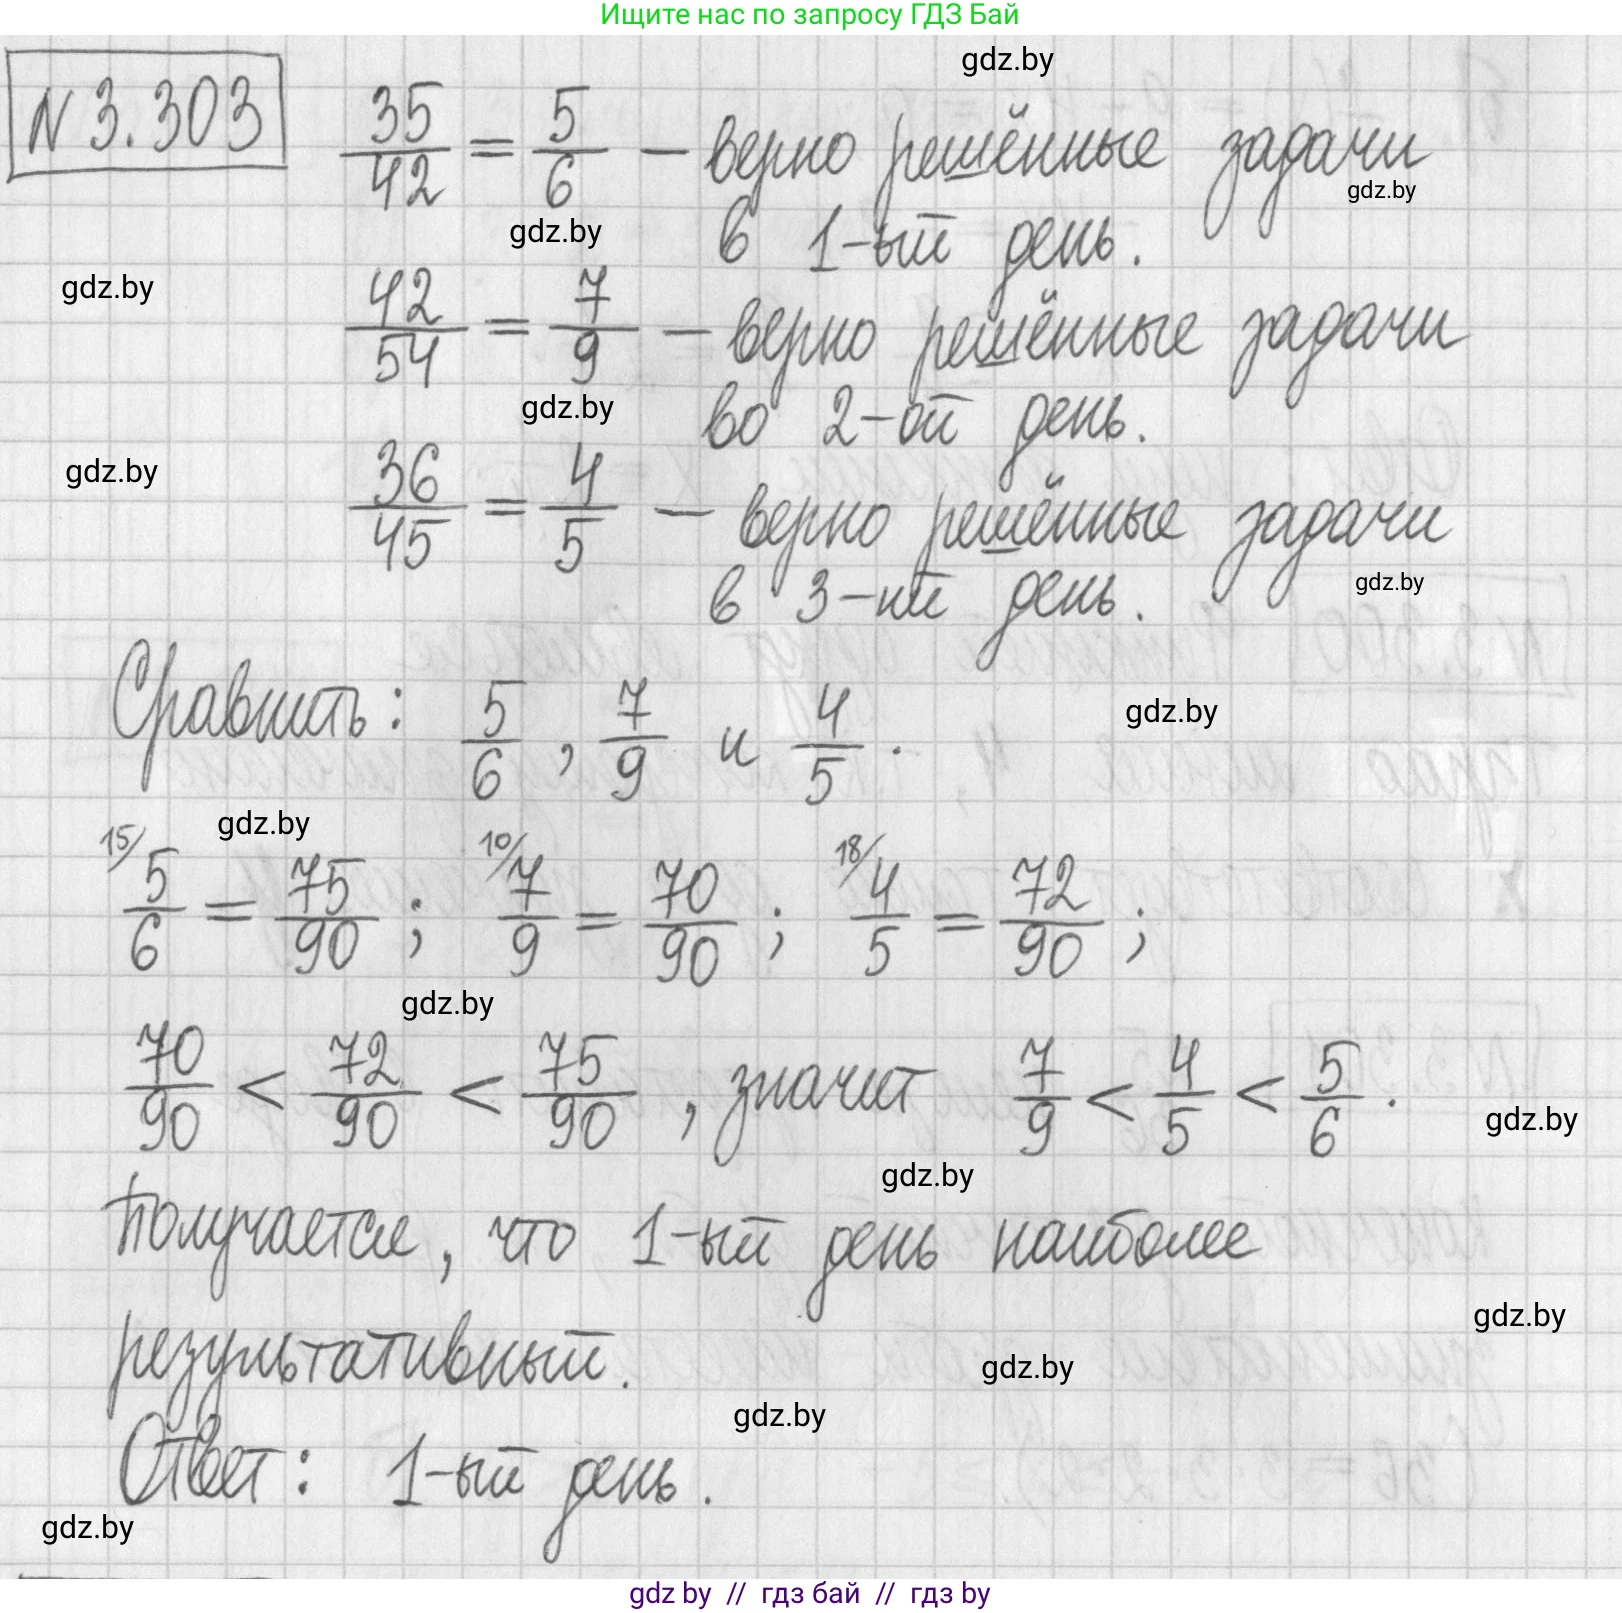 Ищите нас по запросу ГДЗ Бай
gdz.by
N 3.303
35/42 = 5/6 — верно решённые задачи
gdz.by
gdz.by
в 1-ый день.
gdz.by
42/54 = 7/9 — верно решённые задачи
gdz.by
во 2-ой день.
gdz.by
36/45 = 4/5 — верно решённые задачи
gdz.by
в 3-ий день.
Сравнить: 5/6, 7/9 и 4/5.
gdz.by
gdz.by
15/ 5/6 = 75/90; 10/ 7/9 = 70/90; 18/ 4/5 = 72/90;
gdz.by
70/90 < 72/90 < 75/90, значит 7/9 < 4/5 < 5/6.
gdz.by
gdz.by
Получается, что 1-ый день наиболее
gdz.by
результативный.
gdz.by
gdz.by
Ответ: 1-ый день.
gdz.by
gdz by // гдз бай // гдз by